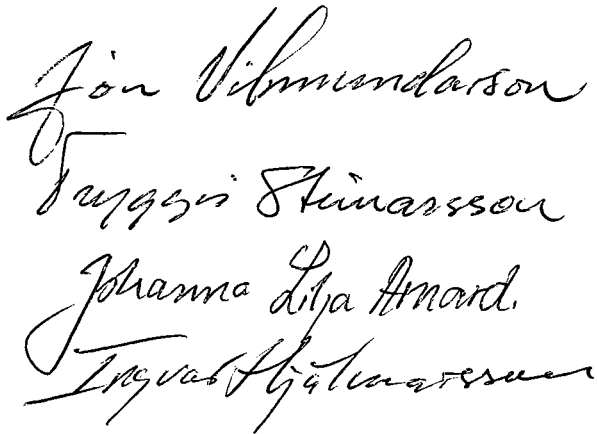 Jón Vilmundarson
Tryggvi Steinarsson
Jóhanna Lilja Arnard.
Ingvar Hjálmarsson